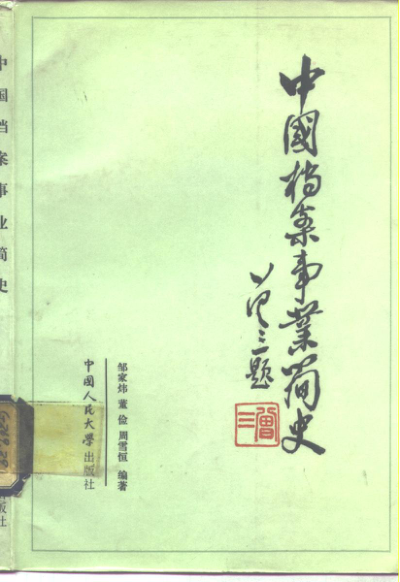 中國档案事業简史
曾三题
曾三
邹家炜 董俭 周雪恒 编著
中國人民大学出版社
中国档案事业简史
版社